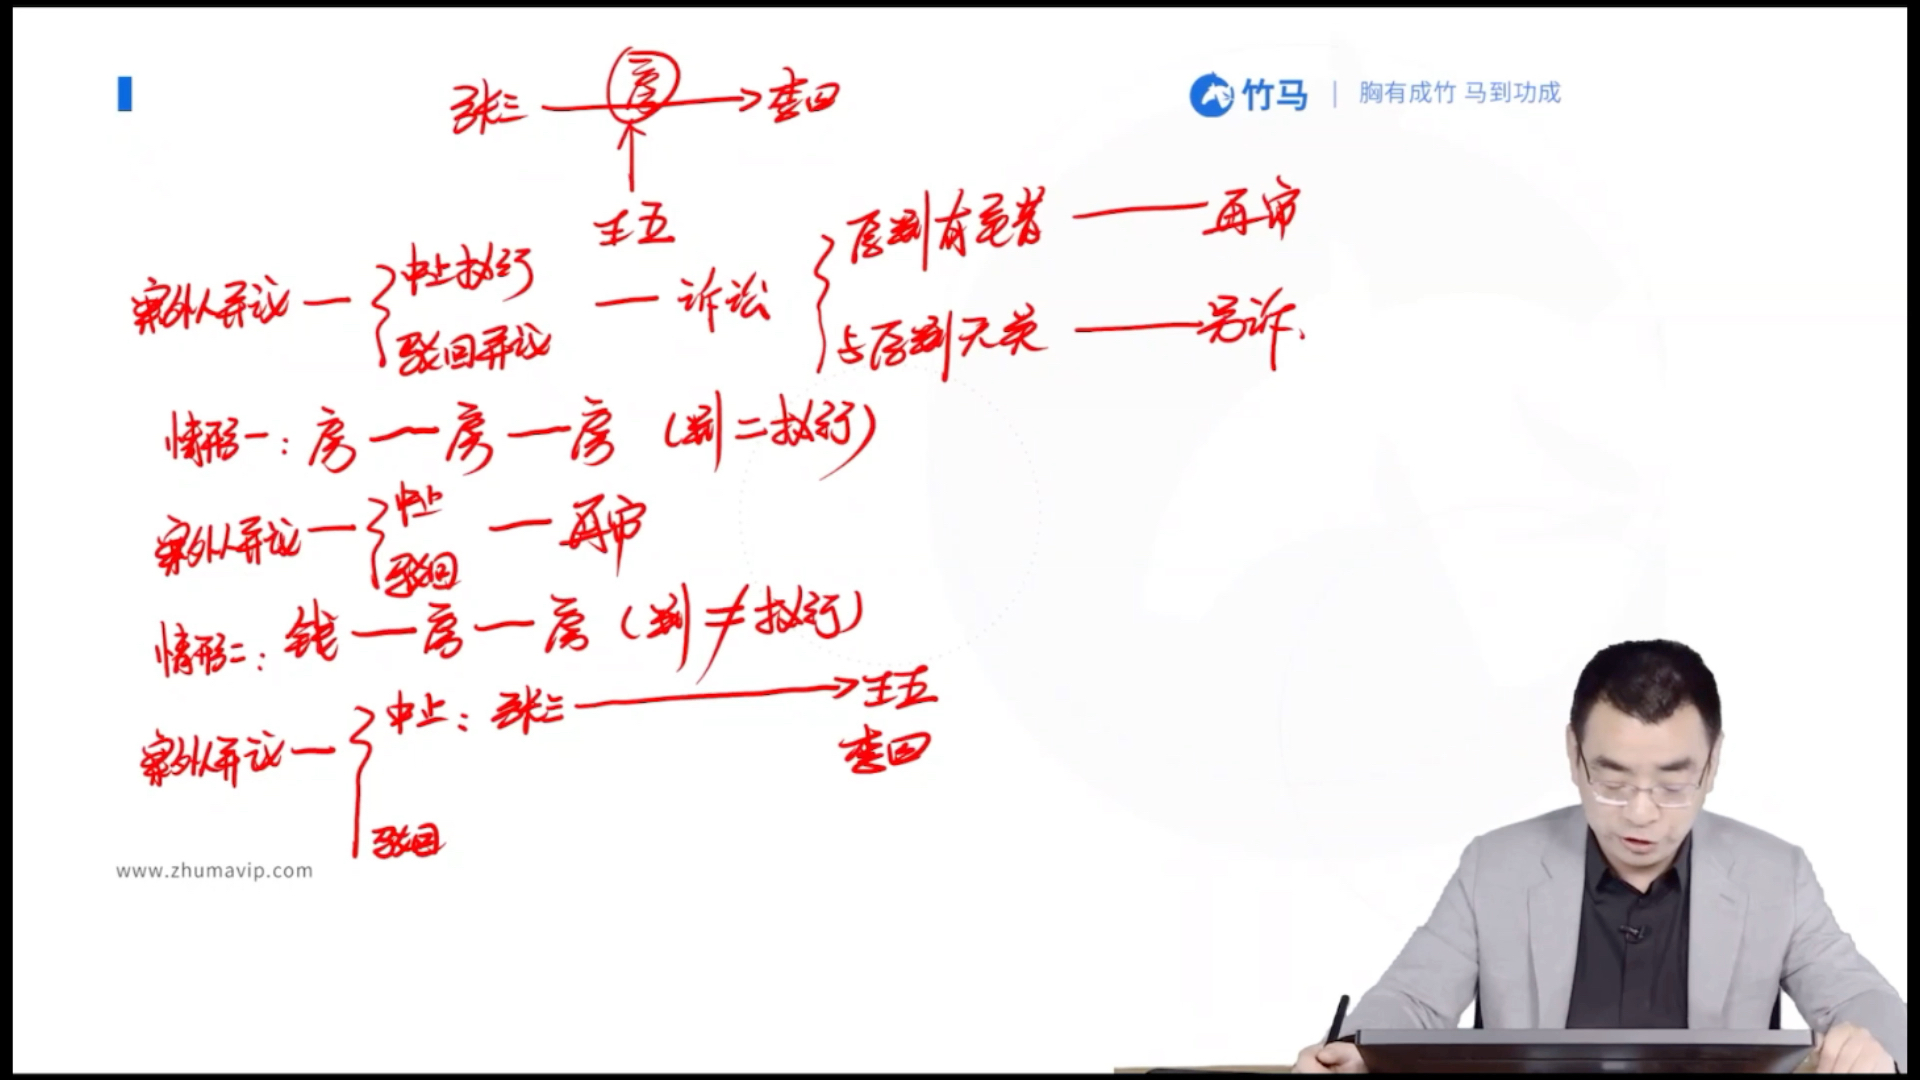 张三 房 李四
竹马 | 胸有成竹 马到功成
王五
案外人异议 — 中止执行 — 诉讼 原判有毛病 — 再审
驳回异议 与原判无关 — 另诉.
情形一：房 — 房 — 房 (判=执行)
案外人异议 — 中止 — 再审
驳回
情形二：钱 — 房 — 房 (判≠执行)
案外人异议 — 中止：张三 → 王五
李四
驳回
www.zhumavip.com